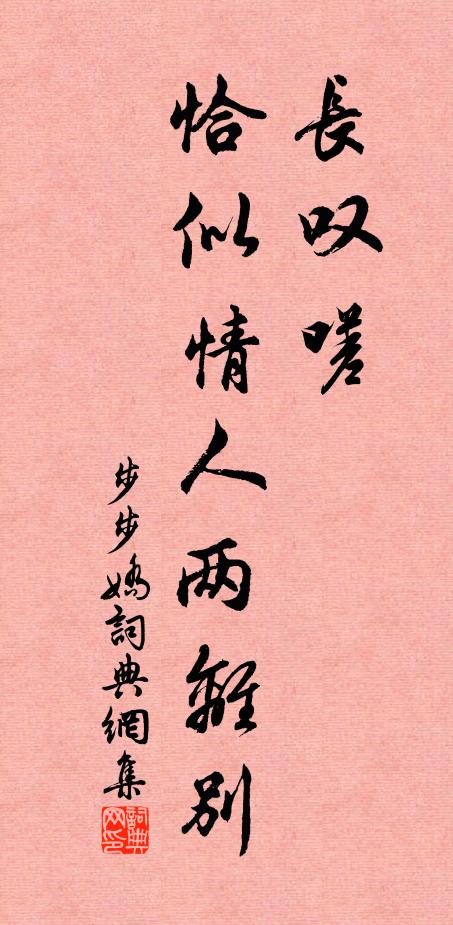 長叹嗟
恰似情人两離别
步步嬌詞典網集
詞典网印